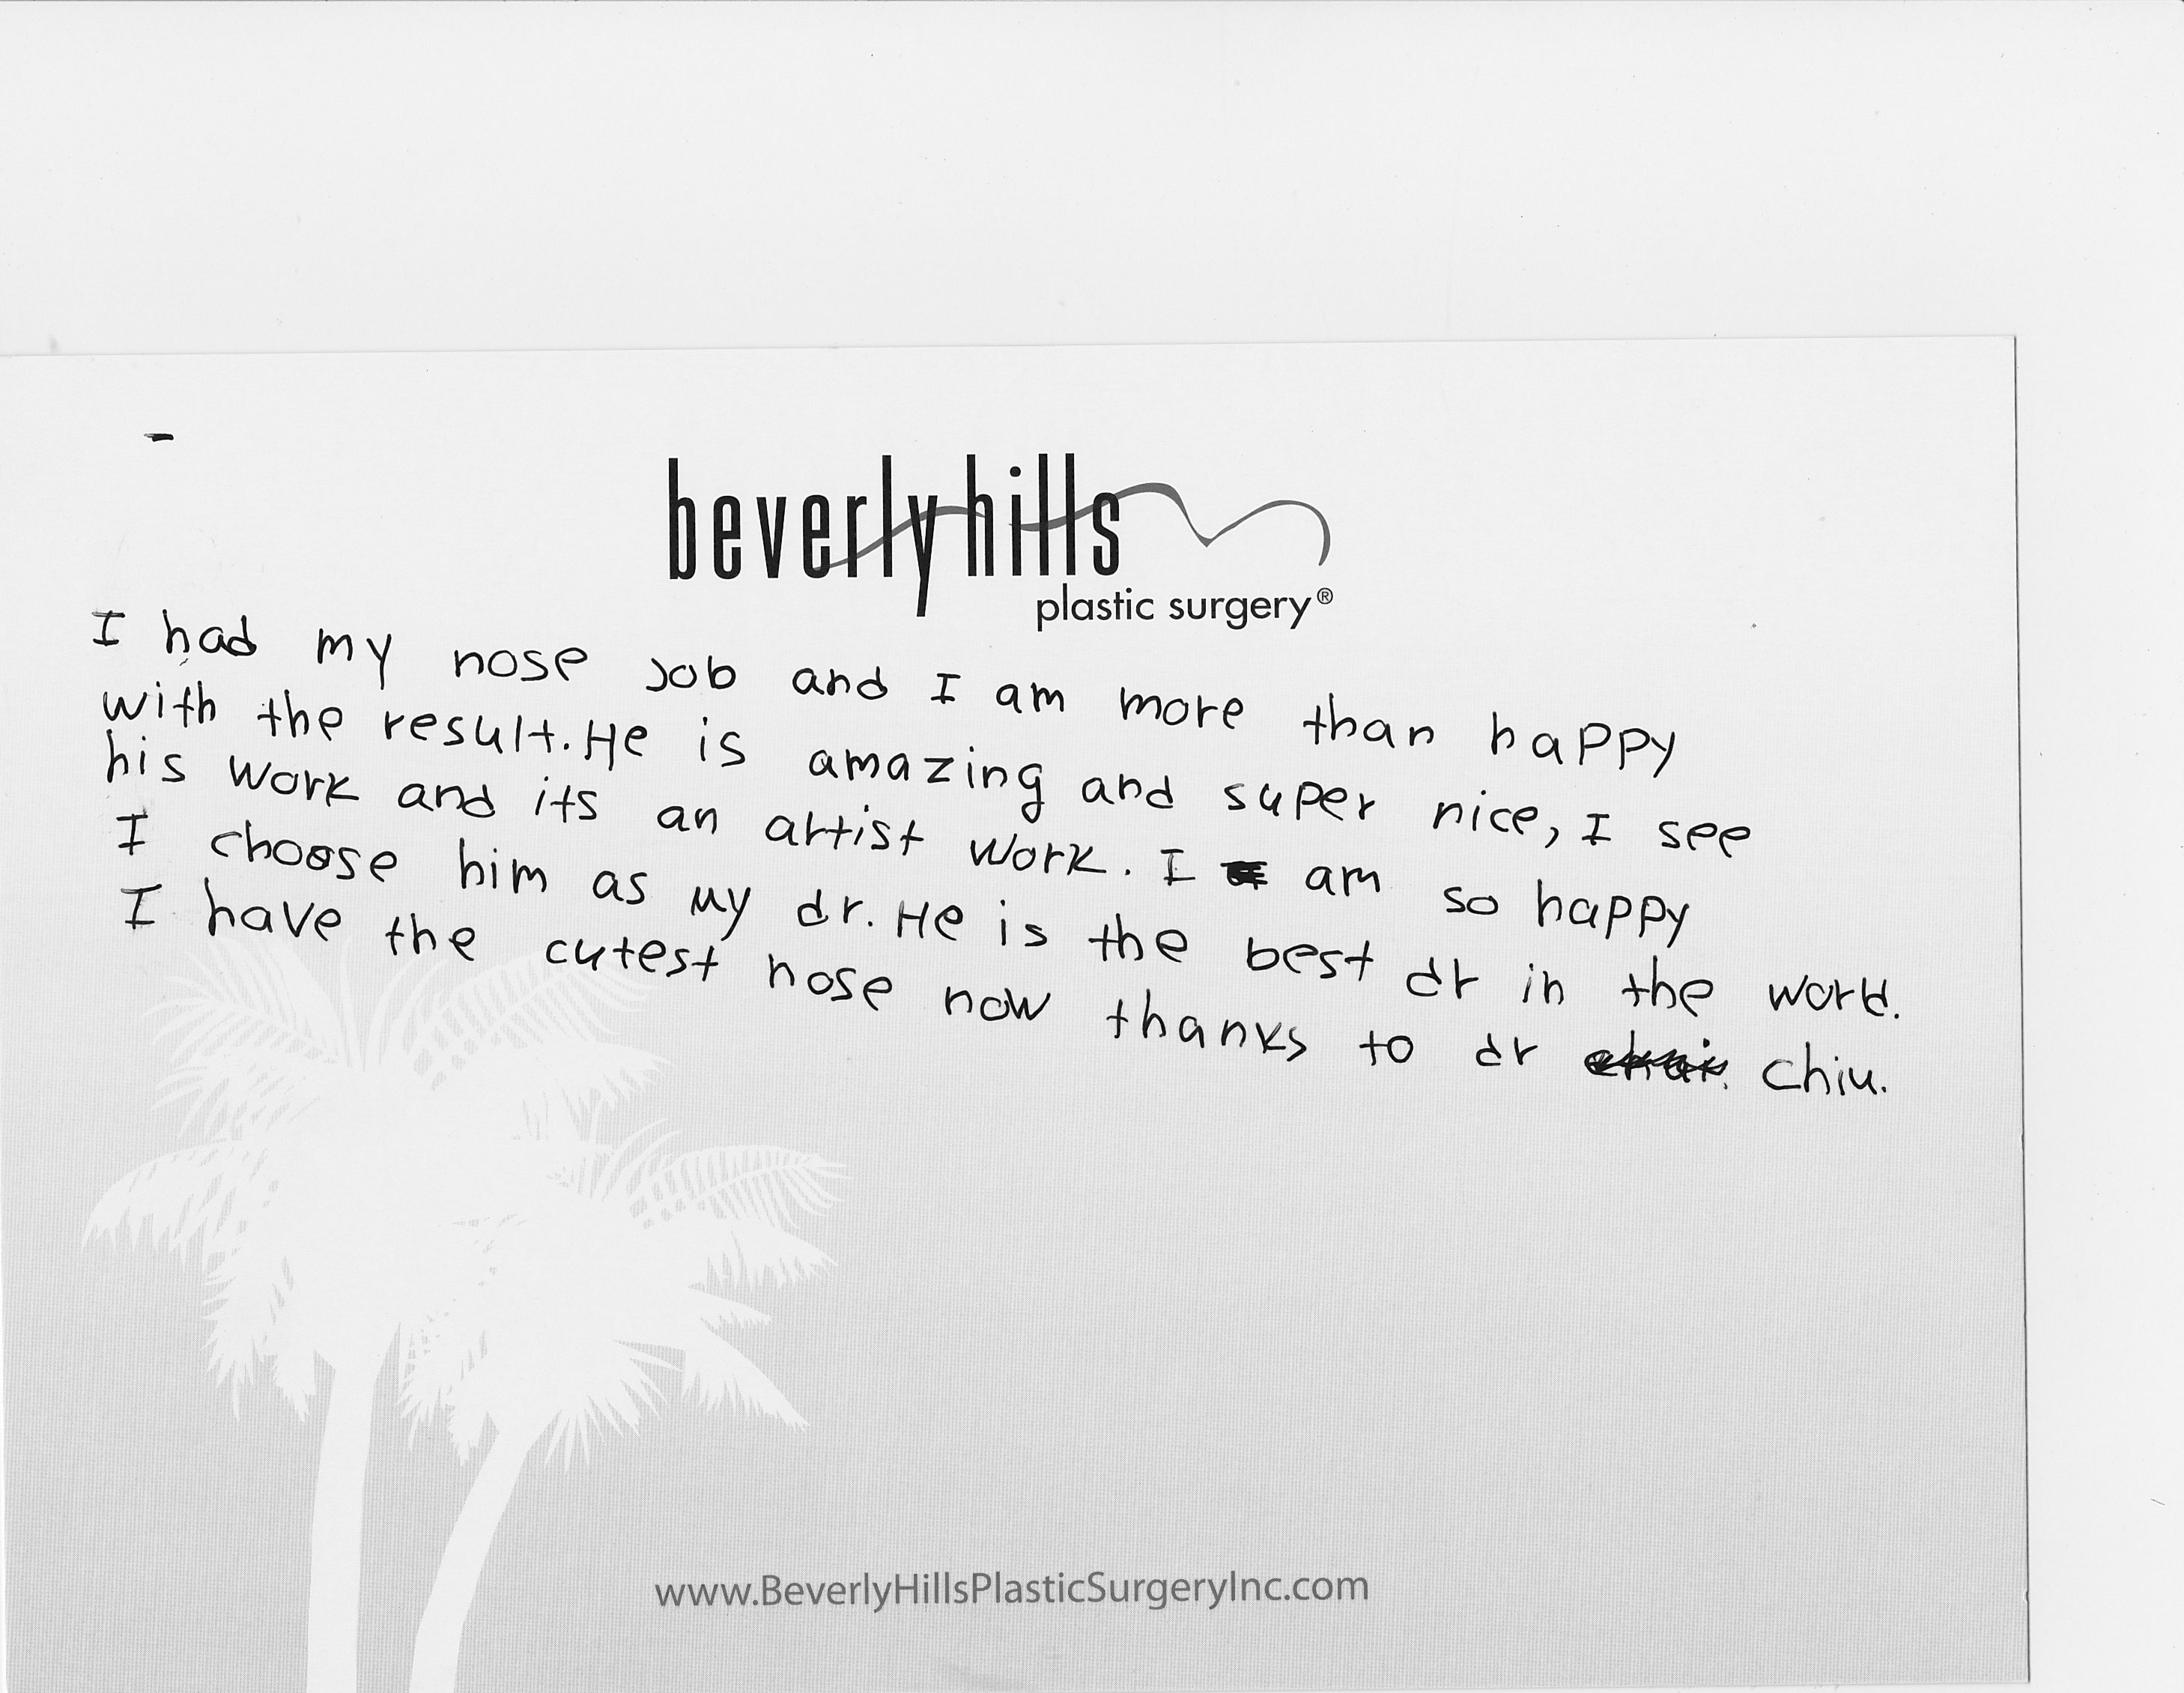 beverly hills
plastic surgery®
I had my nose Job and I am more than happy
with the result. He is amazing and super nice, I see
his work and its an artist work. I am so happy
I choose him as my dr. He is the best dr in the world.
I have the cutest nose now thanks to dr Chiu.
www.BeverlyHillsPlasticSurgeryInc.com